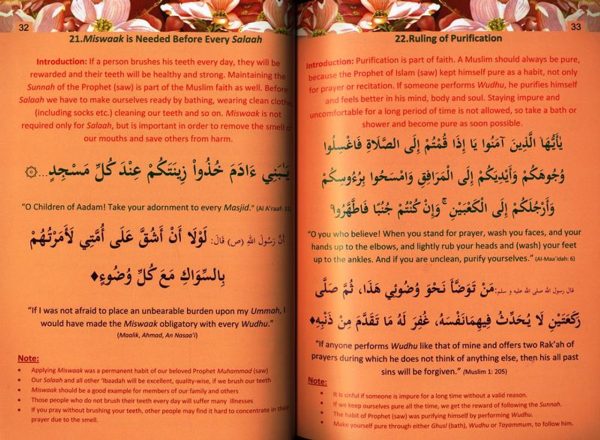 32
21.Miswaak is Needed Before Every Salaah
Introduction: If a person brushes his teeth every day, they will be
rewarded and their teeth will be healthy and strong. Maintaining the
Sunnah of the Prophet (saw) is part of the Muslim faith as well. Before
Salaah we have to make ourselves ready by bathing, wearing clean clothes
(including socks etc.) cleaning our teeth and so on. Miswaak is not
required only for Salaah, but is important in order to remove the smell of
our mouths and save others from harm.
يَـٰبَنِي ءَادَمَ خُذُواْ زِينَتَكُمْ عِندَ كُلِّ مَسْجِدٍ...
"O Children of Aadam! Take your adornment to every Masjid." (Al A'raaf:
أَنَّ رَسُولَ اللهِ (ص) قَالَ: لَوْلَا أَنْ أَشُقَّ عَلَى أُمَّتِي لَأَمَرْتُهُمْ
بِالسِّوَاكِ مَعَ كُلِّ وُضُوءٍ
"If I was not afraid to place an unbearable burden upon my Ummah, I
would have made the Miswaak obligatory with every Wudhu."
(Maalik, Ahmad, An Nasaa'i)
Note:
• Applying Miswaak was a permanent habit of our beloved Prophet Muhammad (saw)
• Our Salaah and all other 'Ibaadah will be excellent, quality-wise, if we brush our teeth
• Miswaak should be a good example for members of our family and others
• Those people who do not brush their teeth every day will suffer many illnesses
• If you pray without brushing your teeth, other people may find it hard to concentrate in their
prayer due to the smell.
33
22.Ruling of Purification
Introduction: Purification is part of faith. A Muslim should always be pure,
because the Prophet of Islam (saw) kept himself pure as a habit, not only
for prayer or recitation. If someone performs Wudhu, he purifies himself
and feels better in his mind, body and soul. Staying impure and
uncomfortable for a long period of time is not allowed, so take a bath or
shower and become pure as soon possible.
يٰأَيُّهَا الَّذِينَ آمَنُوا يَا إِذَا قُمْتُمْ إِلَى الصَّلَاةِ فَاغْسِلُوا
وُجُوهَكُمْ وَأَيْدِيَكُمْ إِلَى الْمَرَافِقِ وَامْسَحُوا بِرُءُوسِكُمْ
وَأَرْجُلَكُمْ إِلَى الْكَعْبَيْنِ ۚ وَإِنْ كُنْتُمْ جُنُبًا فَاطَّهَّرُوا
"O you who believe! When you stand for prayer, wash you faces, and your
hands up to the elbows, and lightly rub your heads and (wash) your feet
up to the ankles. And if you are unclean, purify yourselves." (Al-Maa'idah: 6)
قال رسول الله صلى الله عليه و سلم: مَنْ تَوَضَّأَ نَحْوَ وُضُوئِي هَذَا، ثُمَّ صَلَّى
رَكْعَتَيْنِ لَا يُحَدِّثُ فِيهِمَانَفْسَهُ، غُفِرَ لَهُ مَا تَقَدَّمَ مِنْ ذَنْبِهِ
"If anyone performs Wudhu like that of mine and offers two Rak'ah of
prayers during which he does not think of anything else, then his all past
sins will be forgiven." (Muslim 1: 205)
Note:
• It is sinful if someone is impure for a long time without a valid reason.
• If we keep ourselves pure all the time, we get the reward of following the Sunnah.
• The habit of Prophet (saw) was purifying himself by performing Wudhu.
• Make yourself pure through either Ghusl (bath), Wudhu or Tayammum, to follow him.